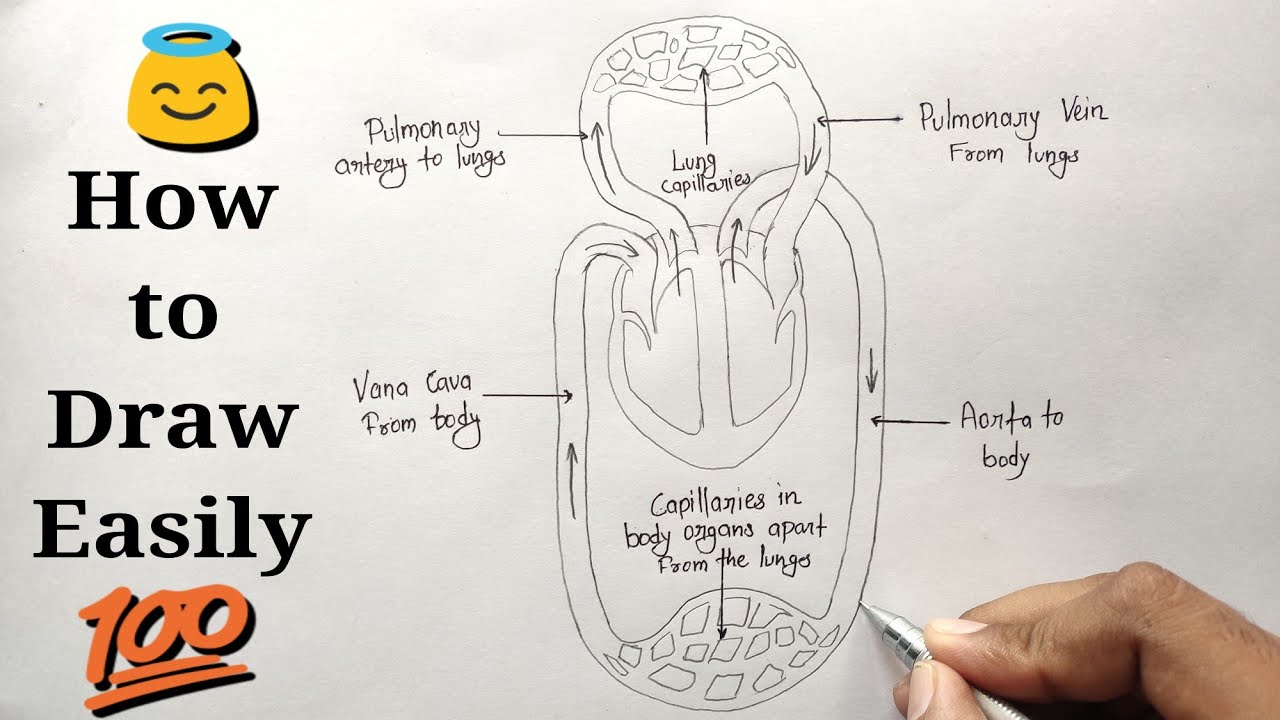 How
to
Draw
Easily
100
Pulmonary
artery to lungs
Lung
capillaries
Pulmonary Vein
From lungs
Vana Cava
From body
Aorta to
body
Capillaries in
body organs apart
From the lunges